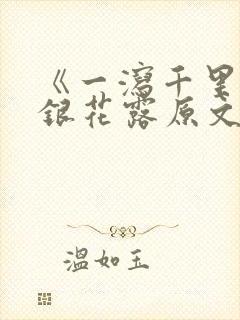 《一泻千里
银花露原文
温如玉